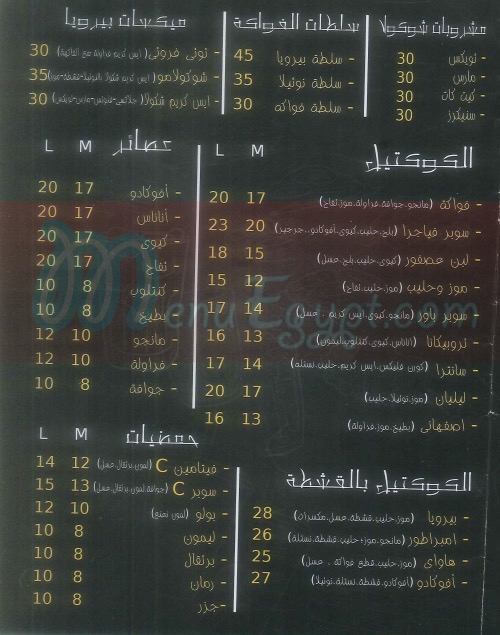 مشروبات شوكولا
- تويكس 30
- مارس 30
- كيت كات 30
- سنيكرز 30
سلطات الفواكة
- سلطة بيرويا 45
- سلطة نوتيلا 35
- سلطة فواكه 30
ميكسات بيرويا
- توتى فروتى (ايس كريم فراولة مع الفاكهة) 30
- شوكولامو (ايس كريم شكولا بالنوتيلا-قشطة-موز) 35
- ايس كريم شكولا (جلاكسى-فلوتس-مارس-تويكس) 30
الكوكتيل
M L
- فواكة (مانجو.جوافة.فراولة.موز.تفاح) 17 20
- سوبر فياجرا (بلح.حليب.كيوى.أفوكادو..جرجير) 20 23
- لبن عصفور (كيوى.حليب.بلح.عسل) 15 18
- موز وحليب (موز.حليب.تفاح) 12 15
- سوبر باور (مانجو.كيوى.ايس كريم . عسل) 14 17
- تروبيكانا (اناناس.كيوى.كنتلوب.ليمون) 13 16
- سانترا (كورن فليكس.ايس كريم.حليب.نستله) 14 17
- ليليان (موز.نوتيلا.حليب) 17 20
- اصفهانى (بطيخ.موز.فراولة) 13 16
عصائر
M L
- أفوكادو 17 20
- أناناس 17 20
- كيوى 17 20
- تفاح 17 20
- كنتلوب 8 10
- بطيخ 8 10
- مانجو 10 12
- فراولة 10 12
- جوافة 8 10
حمضيات
M L
- فيتامين C (ليمون.برتقال.عسل) 12 14
- سوبر C (جوافة.ليمون.برتقال.عسل) 13 15
- بولو (ليمون نعنع) 10 12
- ليمون 8 10
- برتقال 8 10
- رمان 8 10
- جزر 8 10
الكوكتيل بالقشطة
- بيرويا (موز.حليب.قشطة.عسل.مكسرات) 28
- امبراطور (مانجو.موز.حليب.قشطة.نستلة) 26
- هاواى (موز.حليب.قطع فواكة . عسل) 25
- أفوكادو (أفوكادو.قشطة.نستلة.نوتيلا) 27
MenuEgypt.com